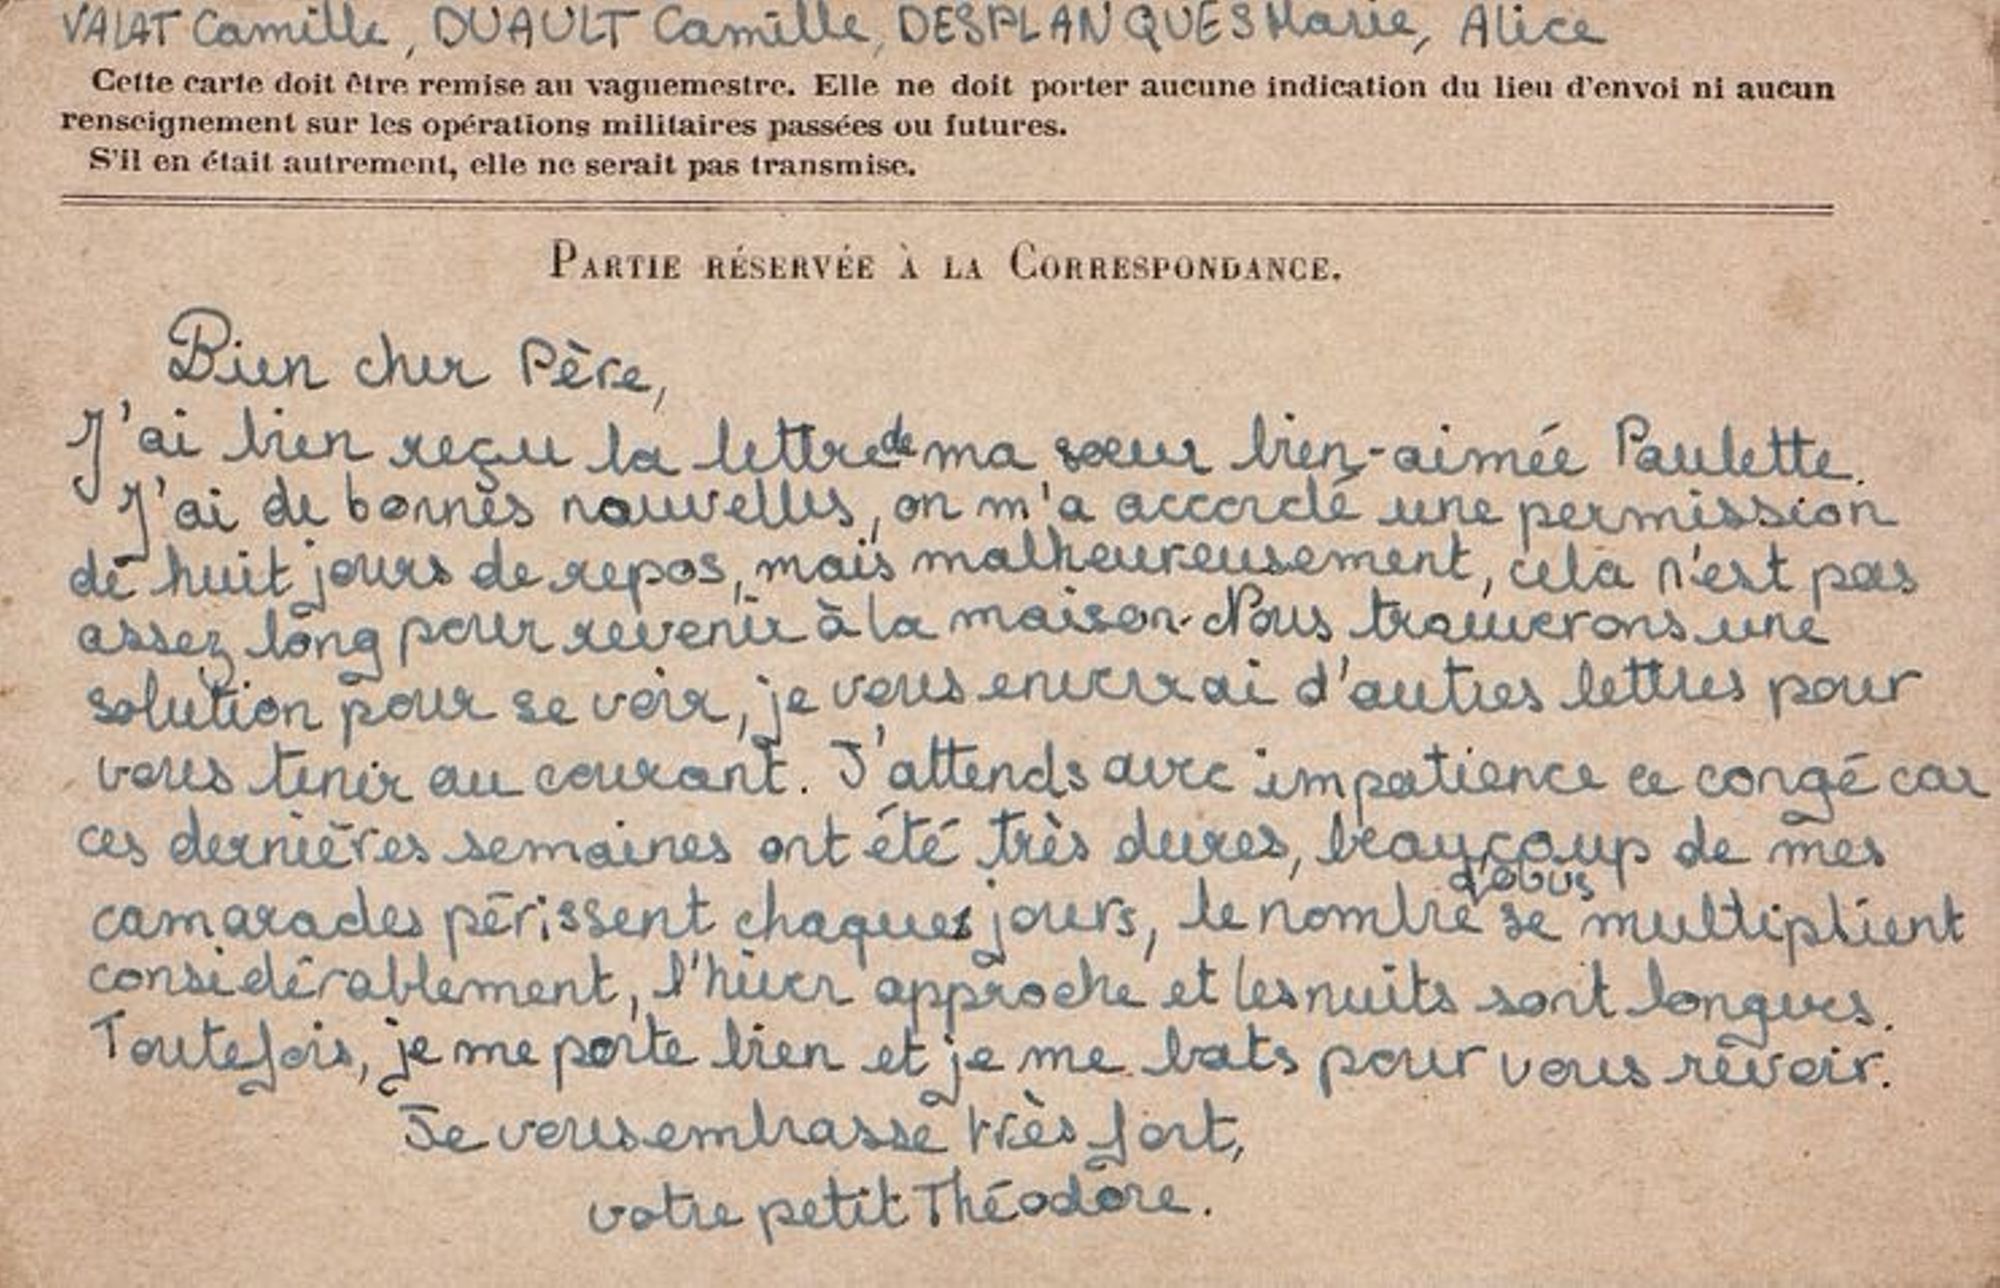 VALAT Camille, DUAULT Camille, DESPLANQUES Marie, Alice
Cette carte doit être remise au vaguemestre. Elle ne doit porter aucune indication du lieu d'envoi ni aucun
renseignement sur les opérations militaires passées ou futures.
S'il en était autrement, elle ne serait pas transmise.
PARTIE RÉSERVÉE À LA CORRESPONDANCE.
Bien cher Père,
J'ai bien reçu la lettre de ma sœur bien-aimée Paulette.
J'ai de bonnes nouvelles, on m'a accordé une permission
de huit jours de repos, mais malheureusement, cela n'est pas
assez long pour revenir à la maison. Nous trouverons une
solution pour se voir, je vous enverrai d'autres lettres pour
vous tenir au courant. J'attends avec impatience ce congé car
ces dernières semaines ont été très dures, beaucoup de mes
camarades périssent chaques jours, le nombre d'obus se multiplient
considérablement, l'hiver approche et les nuits sont longues.
Toutefois, je me porte bien et je me bats pour vous revoir.
Je vous embrasse très fort,
votre petit Théodore.